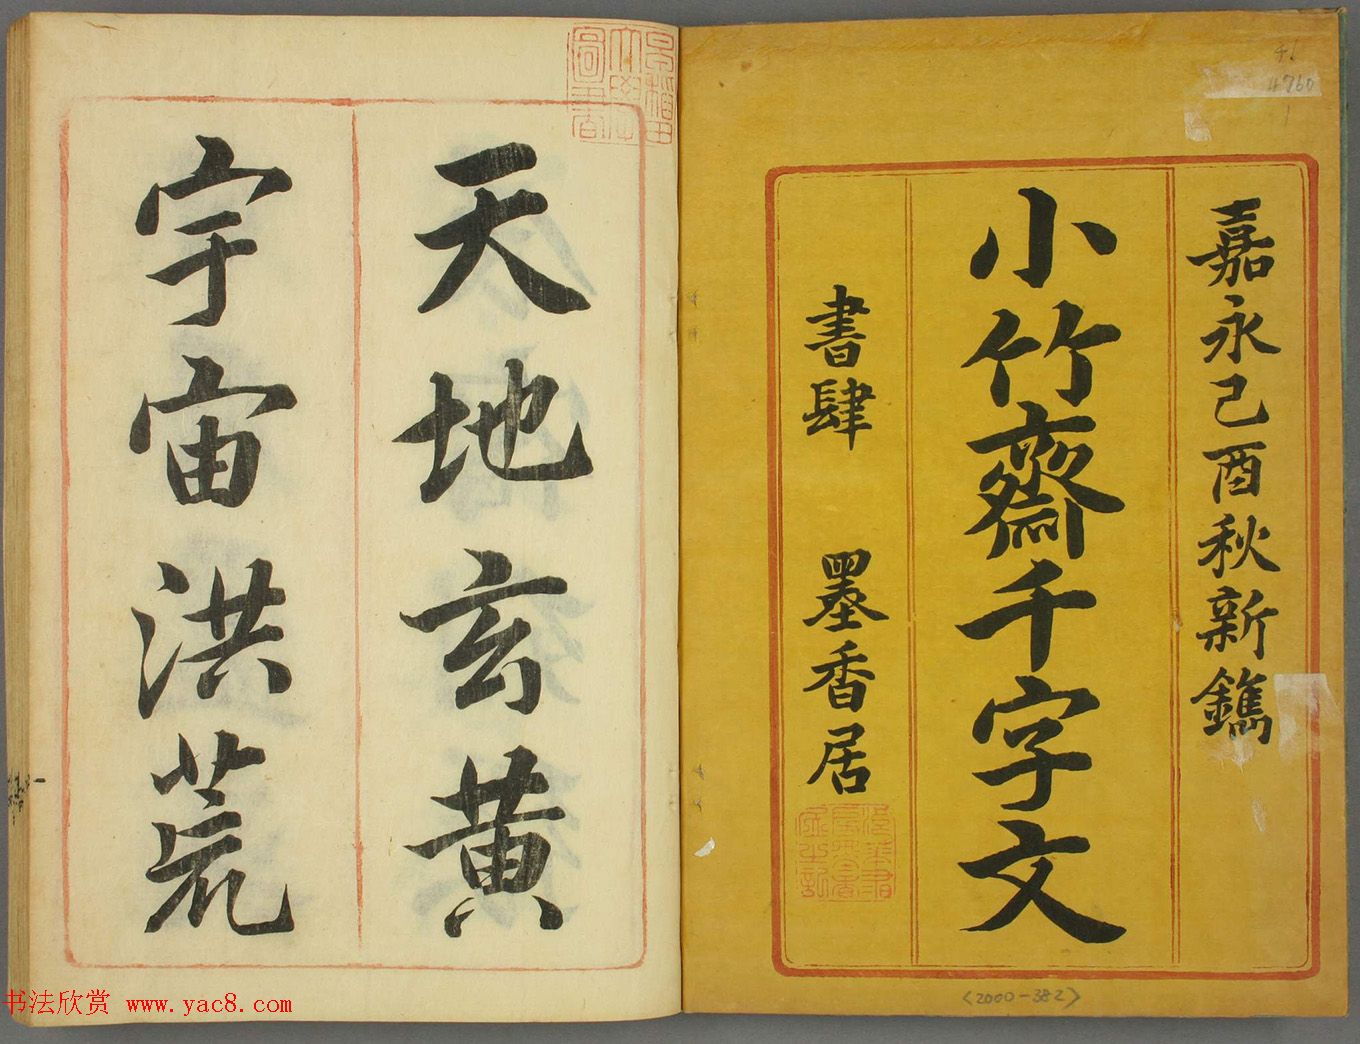 嘉永己酉秋新鐫
小竹齋千字文
書肆 墨香居
46
4760
1
<2000-382>
天地玄黄
宇宙洪荒
书法欣赏 www.yac8.com